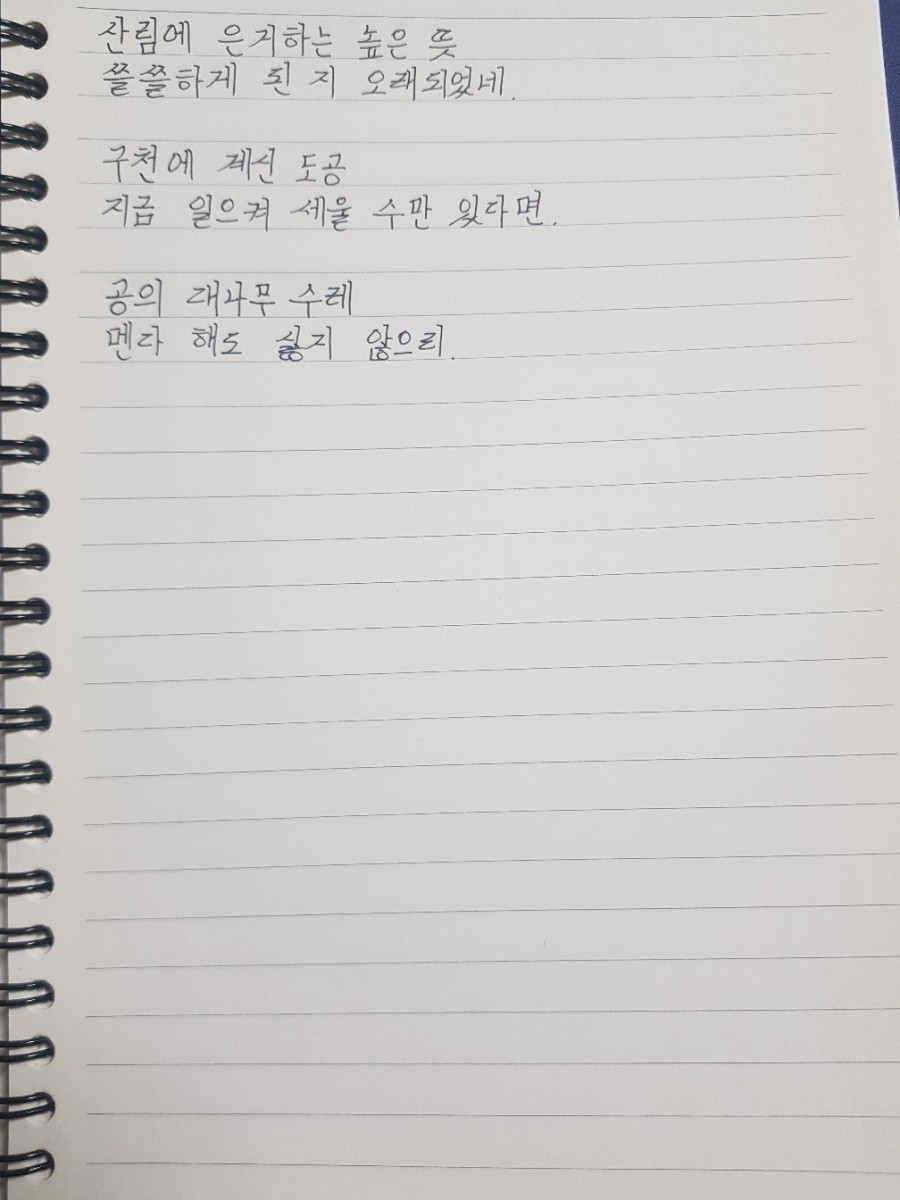 산림에 은거하는 높은 뜻
쓸쓸하게 된 지 오래되었네.
구천에 계신 도공
지금 일으켜 세울 수만 있다면.
공의 대나무 수레
멘다 해도 싫지 않으리.